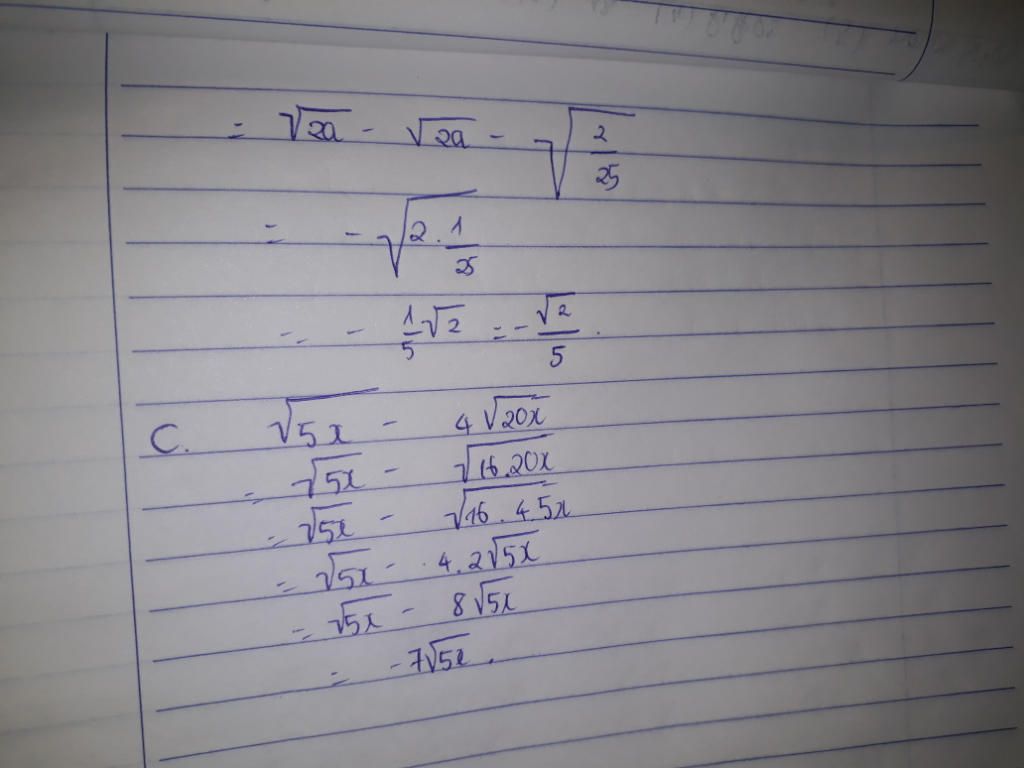 = √2a - √2a - √(2/25)
= - √(2 . 1/25)
= - 1/5 √2 = - √2/5 .
C. √5x - 4√20x
= √5x - √16.20x
= √5x - √16.4.5x
= √5x - 4.2√5x
= √5x - 8√5x
= -7√5x .